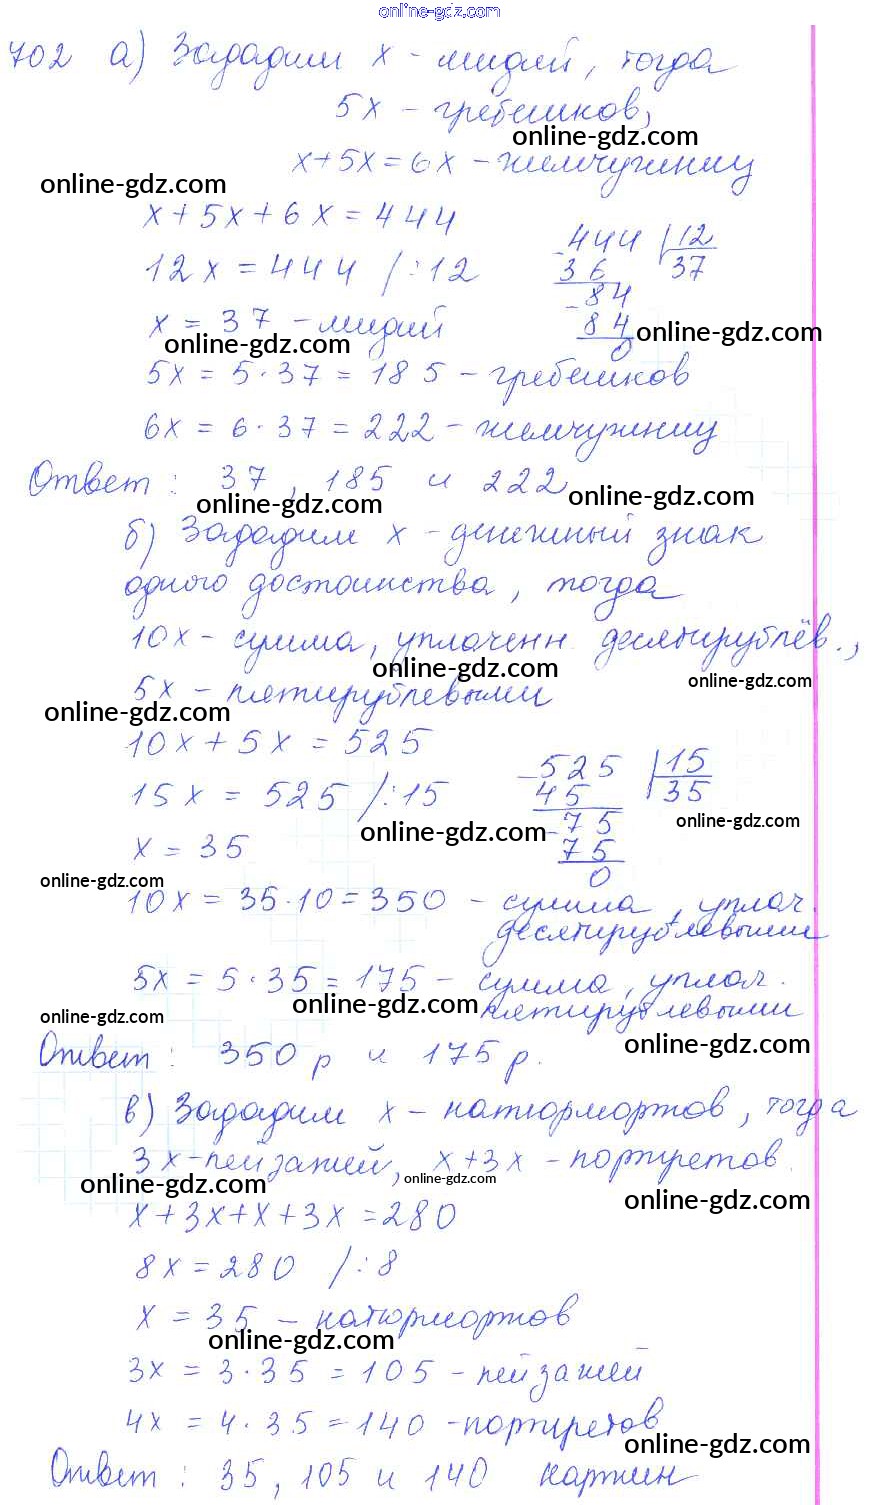 online-gdz.com
702 а) Зададим х - мидий, тогда
5х - гребешков,
online-gdz.com
х+5х=6х - жемчужниц
online-gdz.com
х+5х+6х=444
444 | 12
12х = 444 /:12
36 37
84
х = 37 - мидий
84
online-gdz.com
online-gdz.com
0
5х = 5·37 = 185 - гребешков
6х = 6·37 = 222 - жемчужниц
Ответ: 37, 185 и 222
online-gdz.com
online-gdz.com
б) Зададим х - денежный знак
одного достоинства, тогда
10х - сумма, уплаченн. десятирублёв.,
online-gdz.com
online-gdz.com
5х - пятирублевыми
online-gdz.com
10х + 5х = 525
525 | 15
15х = 525 /:15
45 35
75
online-gdz.com
online-gdz.com
х = 35
75
0
online-gdz.com
10х = 35·10 = 350 - сумма, уплач.
десятирублевыми
5х = 5·35 = 175 - сумма, уплач.
online-gdz.com
пятирублевыми
online-gdz.com
online-gdz.com
Ответ: 350 р и 175 р.
в) Зададим х - натюрмортов, тогда
3х - пейзажей, х+3х - портретов.
online-gdz.com
online-gdz.com
online-gdz.com
х+3х+х+3х =280
8х = 280 /:8
х = 35 - натюрмортов
online-gdz.com
3х = 3·35 = 105 - пейзажей
4х = 4·35 = 140 - портретов
online-gdz.com
Ответ: 35, 105 и 140 картин